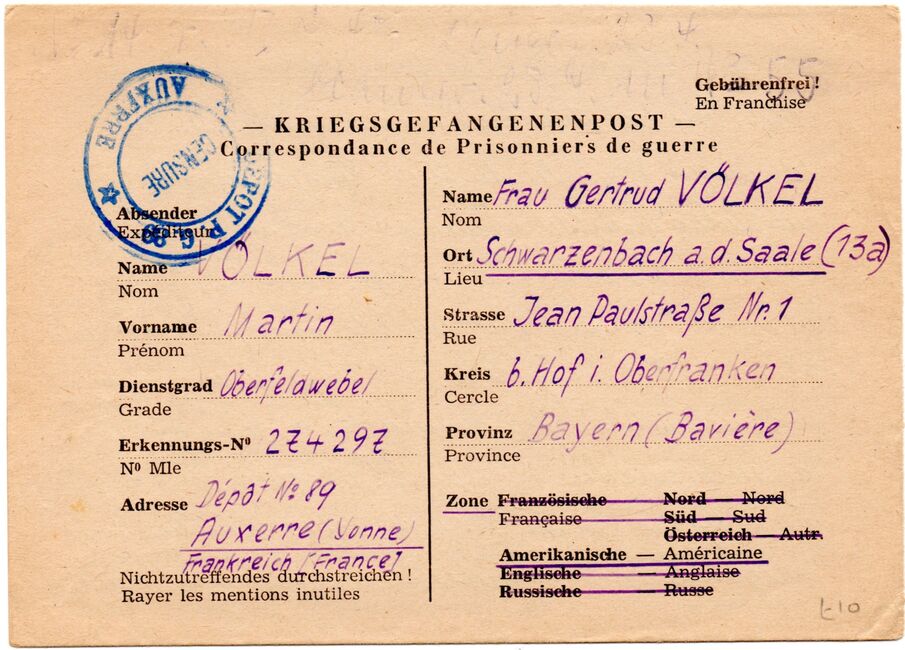 Gebührenfrei!
En Franchise
— KRIEGSGEFANGENENPOST —
Correspondance de Prisonniers de guerre
DEPOT P.G. 89
AUXERRE
CENSURE
Absender
Expéditeur
Name VÖLKEL
Nom
Vorname Martin
Prénom
Dienstgrad Oberfeldwebel
Grade
Erkennungs-Nº 274297
Nº Mle
Adresse Dépôt No 89
Auxerre (Yonne)
Frankreich [France]
Nichtzutreffendes durchstreichen!
Rayer les mentions inutiles
Name Frau Gertrud VÖLKEL
Nom
Ort Schwarzenbach a.d. Saale (13a)
Lieu
Strasse Jean Paulstraße Nr. 1
Rue
Kreis b. Hof i. Oberfranken
Cercle
Provinz Bayern (Bavière)
Province
Zone Französische — Nord — Nord
Française Süd — Sud
Österreich — Autr.
Amerikanische — Américaine
Englische — Anglaise
Russische — Russe
£10